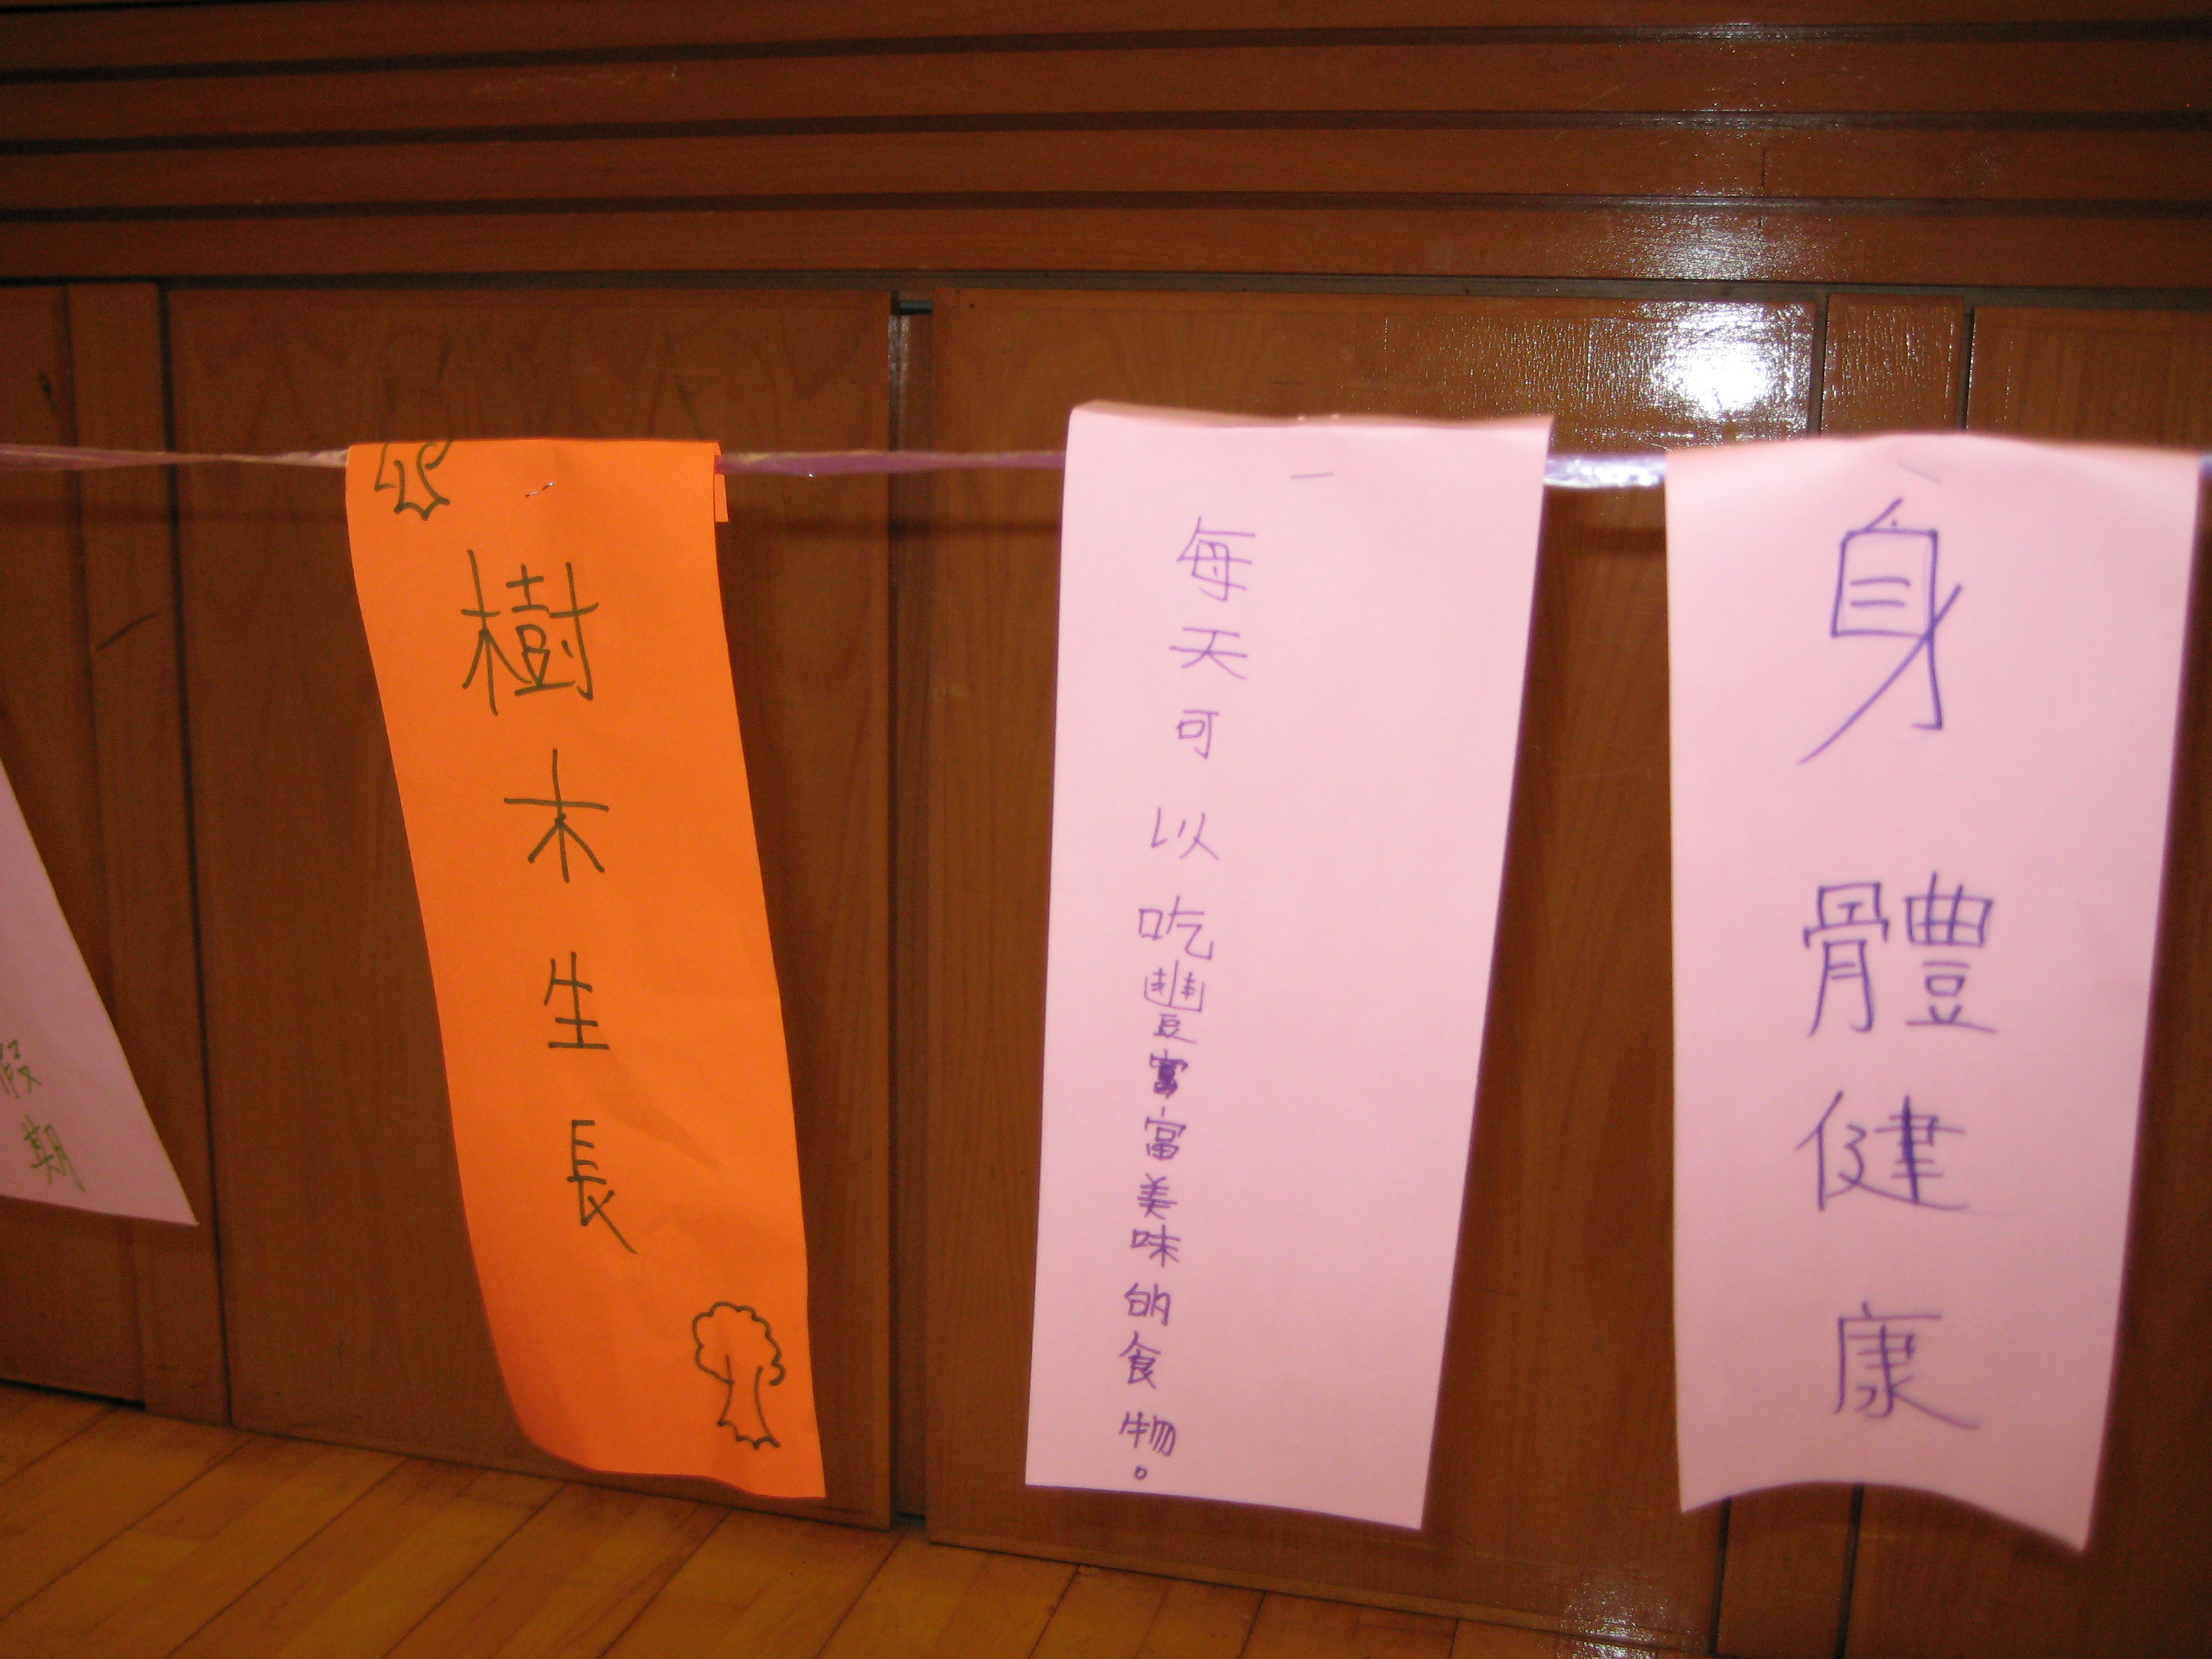 假期
樹木生長
每天可以吃豐富美味的食物。
身體健康